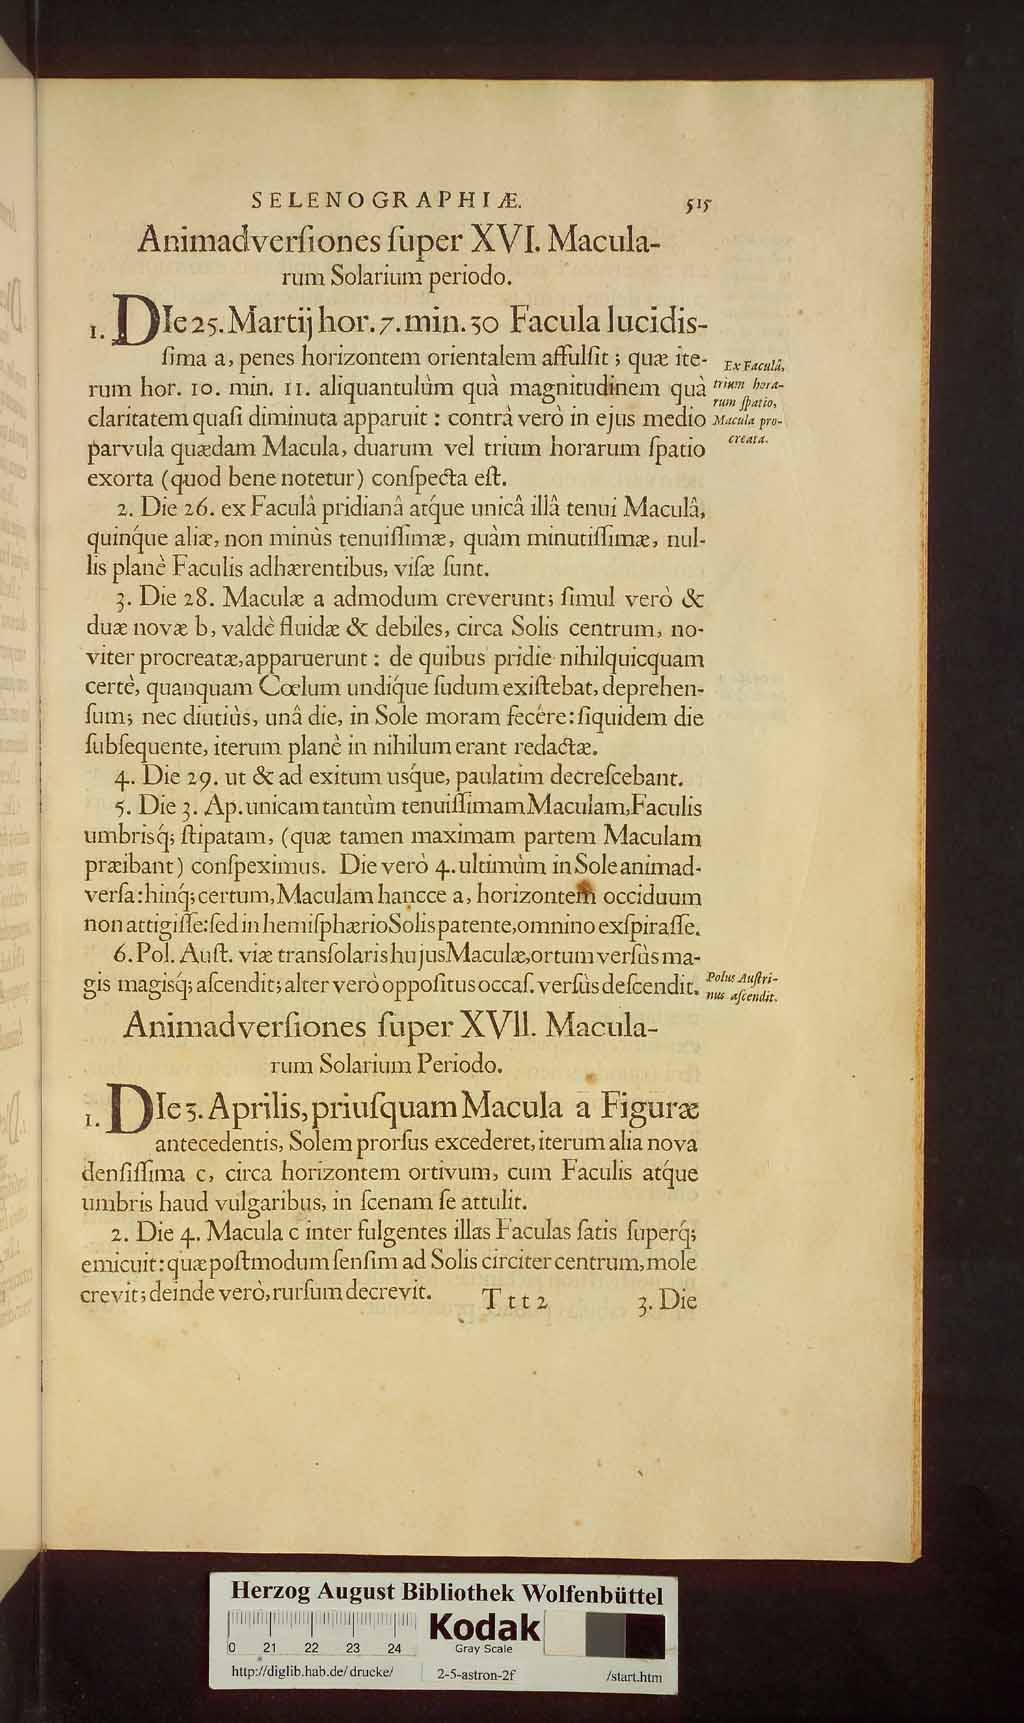 SELENOGRAPHIÆ. 515
Animadverſiones ſuper XVI. Macula-
rum Solarium periodo.
1. DIe 25. Martij hor. 7. min. 30 Facula lucidis-
ſima a, penes horizontem orientalem affulſit; quæ ite-
rum hor. 10. min. 11. aliquantulùm quà magnitudinem quà
claritatem quaſi diminuta apparuit: contrà verò in ejus medio
parvula quædam Macula, duarum vel trium horarum ſpatio
exorta (quod bene notetur) conſpecta eſt.
Ex Faculâ,
trium hora-
rum ſpatio,
Macula pro-
creata.
2. Die 26. ex Faculâ pridianâ atq́ue unicâ illâ tenui Maculâ,
quinq́ue aliæ, non minùs tenuiſſimæ, quàm minutiſſimæ, nul-
lis planè Faculis adhærentibus, viſæ ſunt.
3. Die 28. Maculæ a admodum creverunt; ſimul verò &
duæ novæ b, valdè fluidæ & debiles, circa Solis centrum, no-
viter procreatæ, apparuerunt: de quibus pridie nihilquicquam
certè, quanquam Cœlum undiq́ue ſudum exiſtebat, deprehen-
ſum; nec diutiùs, unâ die, in Sole moram fecére: ſiquidem die
ſubſequente, iterum planè in nihilum erant redactæ.
4. Die 29. ut & ad exitum usq́ue, paulatim decreſcebant.
5. Die 3. Ap. unicam tantùm tenuiſſimam Maculam, Faculis
umbrisq́; ſtipatam, (quæ tamen maximam partem Maculam
præibant) conſpeximus. Die verò 4. ultimùm in Sole animad-
verſa: hinq́; certum, Maculam hancce a, horizontem occiduum
non attigiſſe: ſed in hemiſphærio Solis patente, omnino exſpiraſſe.
6. Pol. Auſt. viæ transſolaris hujus Maculæ, ortum verſùs ma-
gis magisq́; aſcendit; alter verò oppoſitus occaſ. verſùs deſcendit.
Polus Auſtri-
nus aſcendit.
Animadverſiones ſuper XVII. Macula-
rum Solarium Periodo.
1. DIe 3. Aprilis, priuſquam Macula a Figuræ
antecedentis, Solem prorſus excederet, iterum alia nova
denſiſſima c, circa horizontem ortivum, cum Faculis atq́ue
umbris haud vulgaribus, in ſcenam ſe attulit.
2. Die 4. Macula c inter fulgentes illas Faculas ſatis ſuperq́;
emicuit: quæ poſtmodum ſenſim ad Solis circiter centrum, mole
crevit; deinde verò, rurſum decrevit.
Ttt 2 3. Die
Herzog August Bibliothek Wolfenbüttel
0 21 22 23 24
Kodak
Gray Scale
http://diglib.hab.de/drucke/ 2-5-astron-2f /start.htm